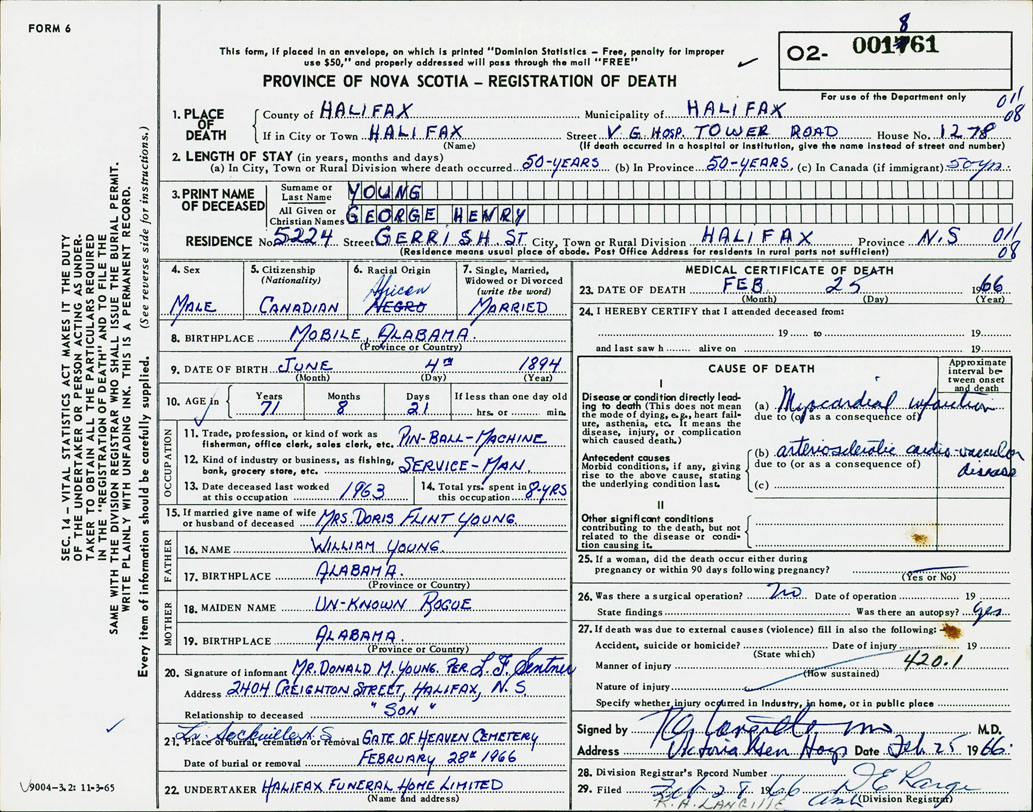 FORM 6
This form, if placed in an envelope, on which is printed "Dominion Statistics – Free, penalty for improper
use $50," and properly addressed will pass through the mail "FREE"
PROVINCE OF NOVA SCOTIA – REGISTRATION OF DEATH
8
O2- 001761
For use of the Department only
1. PLACE OF DEATH
County of HALIFAX Municipality of HALIFAX 011
08
If in City or Town HALIFAX Street V.G. HOSP. TOWER ROAD House No. 1278
(Name) (If death occurred in a hospital or institution, give the name instead of street and number)
2. LENGTH OF STAY (in years, months and days)
(a) In City, Town or Rural Division where death occurred 50-YEARS (b) In Province 50-YEARS. (c) In Canada (if immigrant) 50 yrs.
3. PRINT NAME OF DECEASED
Surname or Last Name YOUNG
All Given or Christian Names GEORGE HENRY
RESIDENCE No. 5224 Street GERRISH. ST City, Town or Rural Division HALIFAX Province N.S 011
08
(Residence means usual place of abode. Post Office Address for residents in rural parts not sufficient)
4. Sex
MALE
5. Citizenship
(Nationality)
CANADIAN
6. Racial Origin
African
NEGRO
7. Single, Married,
Widowed or Divorced
(write the word)
MARRIED
8. BIRTHPLACE MOBILE, ALABAMA.
(Province or Country)
9. DATE OF BIRTH JUNE 4th 1894
(Month) (Day) (Year)
10. AGE in
Years Months Days If less than one day old
71 8 21 hrs. or min.
OCCUPATION
11. Trade, profession, or kind of work as
fisherman, office clerk, sales clerk, etc. PIN-BALL-MACHINE
12. Kind of industry or business, as fishing,
bank, grocery store, etc. SERVICE-MAN.
13. Date deceased last worked
at this occupation 1963
14. Total yrs. spent in
this occupation 8-YRS
15. If married give name of wife
or husband of deceased MRS. DORIS FLINT YOUNG.
FATHER
16. NAME WILLIAM YOUNG.
17. BIRTHPLACE ALABAMA.
(Province or Country)
MOTHER
18. MAIDEN NAME UN-KNOWN ROGUE
19. BIRTHPLACE ALABAMA.
(Province or Country)
20. Signature of informant MR. DONALD M. YOUNG. PER. L. F. Sentner
Address 2404 CREIGHTON STREET, HALIFAX, N.S
Relationship to deceased "SON"
21. Place of burial, cremation or removal GATE OF HEAVEN CEMETERY
Date of burial or removal FEBRUARY 28th 1966
22. UNDERTAKER HALIFAX FUNERAL HOME LIMITED
(Name and address)
MEDICAL CERTIFICATE OF DEATH
23. DATE OF DEATH FEB 25 1966
(Month) (Day) (Year)
24. I HEREBY CERTIFY that I attended deceased from:
19 to 19
and last saw h alive on 19
CAUSE OF DEATH
Approximate
interval be-
tween onset
and death
I
Disease or condition directly lead-
ing to death (This does not mean
the mode of dying, e.g., heart fail-
ure, asthenia, etc. It means the
disease, injury, or complication
which caused death.)
(a) Myocardial infarction
due to (or as a consequence of)
Antecedent causes
Morbid conditions, if any, giving
rise to the above cause, stating
the underlying condition last.
(b) arteriosclerotic cardio-vascular
due to (or as a consequence of) disease
(c)
II
Other significant conditions
contributing to the death, but not
related to the disease or condi-
tion causing it.
25. If a woman, did the death occur either during
pregnancy or within 90 days following pregnancy?
(Yes or No)
26. Was there a surgical operation? No Date of operation 19
State findings Was there an autopsy? yes
27. If death was due to external causes (violence) fill in also the following:
Accident, suicide or homicide? Date of injury 19
(State which)
420.1
Manner of injury
(How sustained)
Nature of injury
Specify whether injury occurred in Industry, in home, or in public place
Signed by M.D.
Address Victoria Gen Hosp. Date Feb 25 1966.
28. Division Registrar's Record Number
29. Filed Feb 28 1966
R. H. LANGILLE
(Division Registrar)
SEC. 14 – VITAL STATISTICS ACT MAKES IT THE DUTY
OF THE UNDERTAKER OR PERSON ACTING AS UNDER-
TAKER TO OBTAIN ALL THE PARTICULARS REQUIRED
IN THE "REGISTRATION OF DEATH" AND TO FILE THE
SAME WITH THE DIVISION REGISTRAR WHO SHALL ISSUE THE BURIAL PERMIT.
WRITE PLAINLY WITH UNFADING INK. THIS IS A PERMANENT RECORD.
Every item of information should be carefully supplied. (See reverse side for instructions.)
9004-3.2: 11-3-65